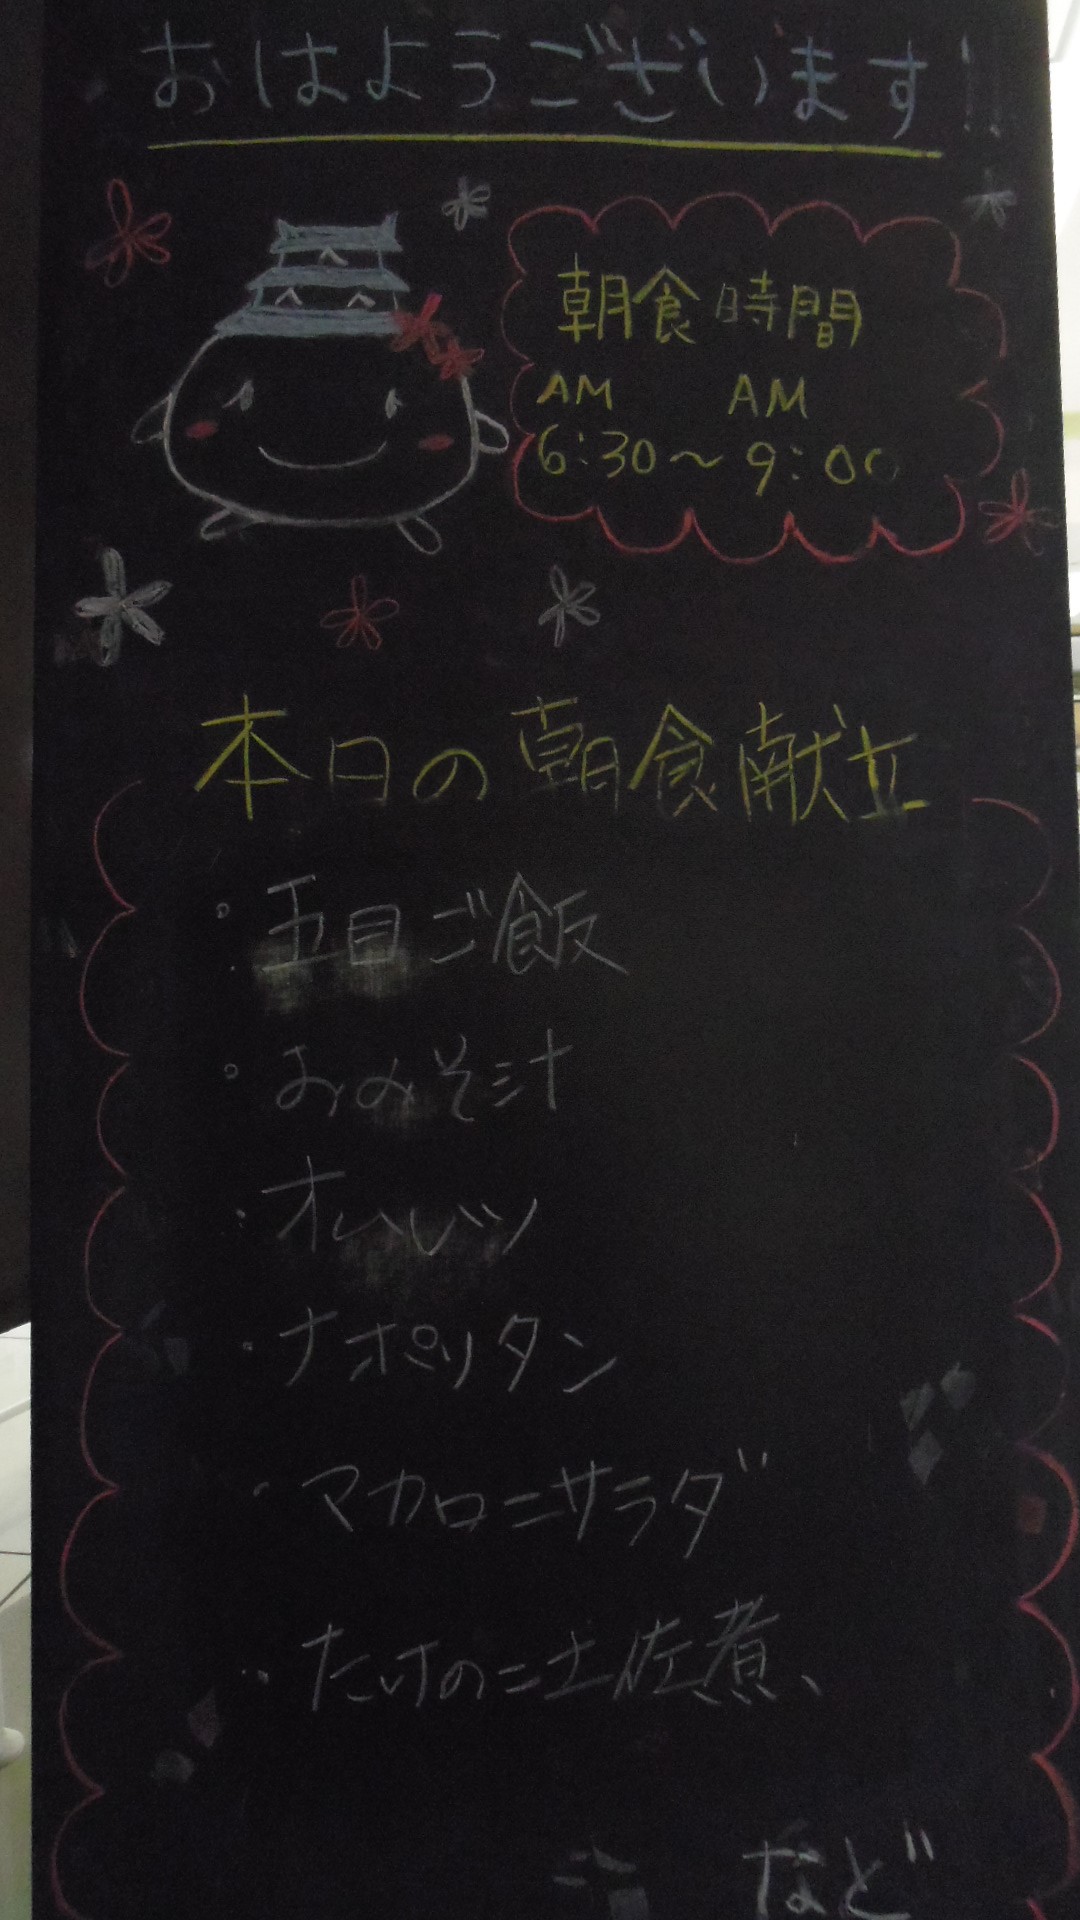 おはようございます!!
朝食時間
AM AM
6:30〜9:00
本日の朝食献立
・五目ご飯
・おみそ汁
・オムレツ
・ナポリタン
・マカロニサラダ
・たけのこ土佐煮、
など